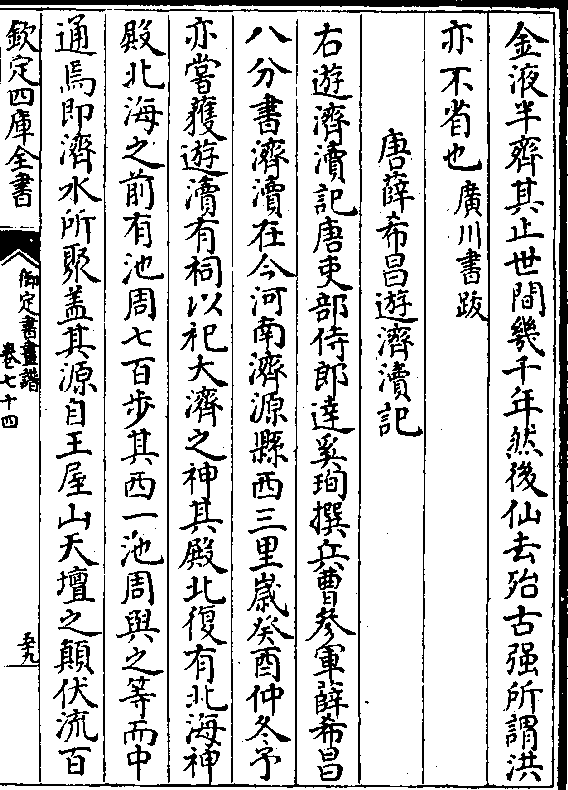 金液半齊其止世間幾千年然後仙去殆古强所謂洪
亦不省也廣川書跋
唐薛希昌遊濟瀆記
右遊濟瀆記唐吏部侍郎達奚珣撰兵曹參軍薛希昌
八分書濟瀆在今河南濟源縣西三里歲癸酉仲冬予
亦嘗獲遊瀆有祠以祀大濟之神其殿北復有北海神
殿北海之前有池周七百步其西一池周與之等而中
通焉即濟水所聚盖其源自王屋山天壇之顛伏流百
欽定四庫全書
御定書畫譜
卷七十四
五九